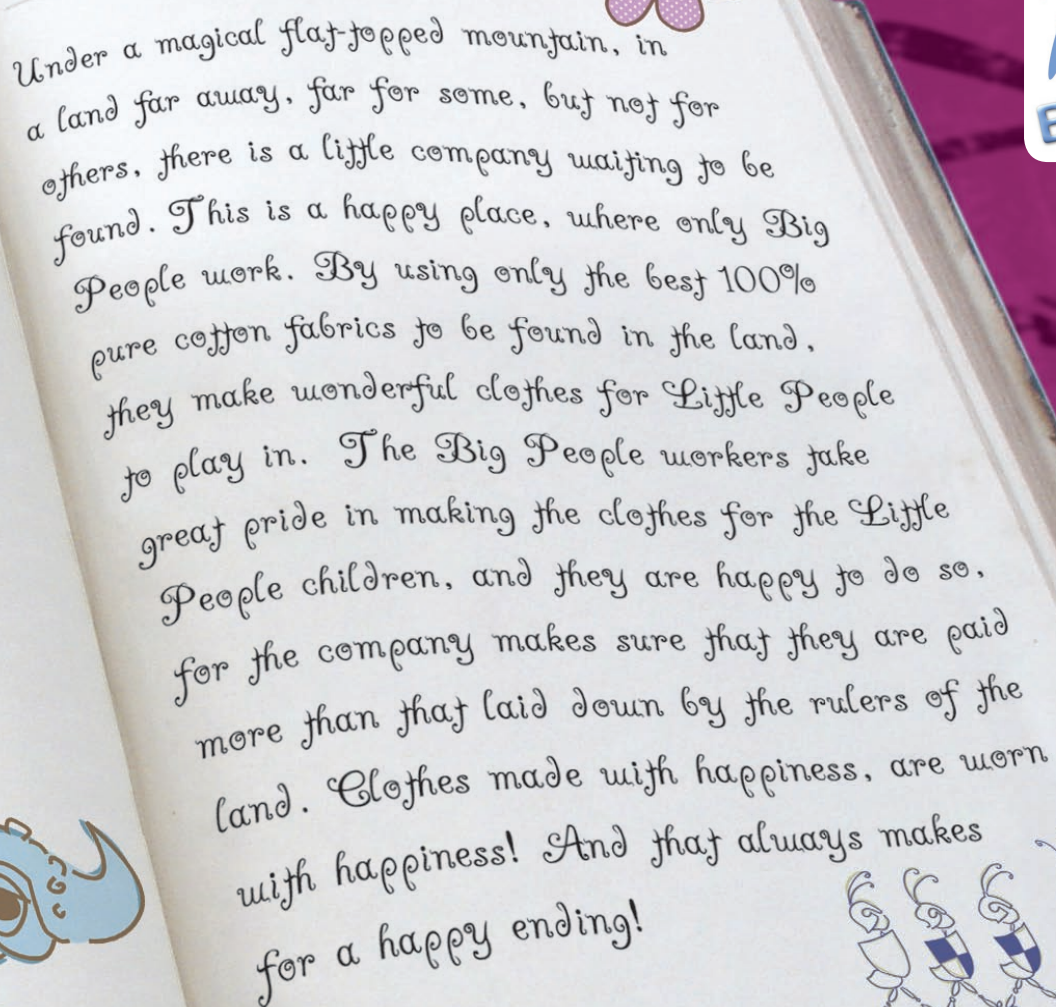 Under a magical flat-topped mountain, in
a land far away, far for some, but not for
others, there is a little company waiting to be
found. This is a happy place, where only Big
People work. By using only the best 100%
pure cotton fabrics to be found in the land,
they make wonderful clothes for Little People
to play in. The Big People workers take
great pride in making the clothes for the Little
People children, and they are happy to do so,
for the company makes sure that they are paid
more than that laid down by the rulers of the
land. Clothes made with happiness, are worn
with happiness! And that always makes
for a happy ending!